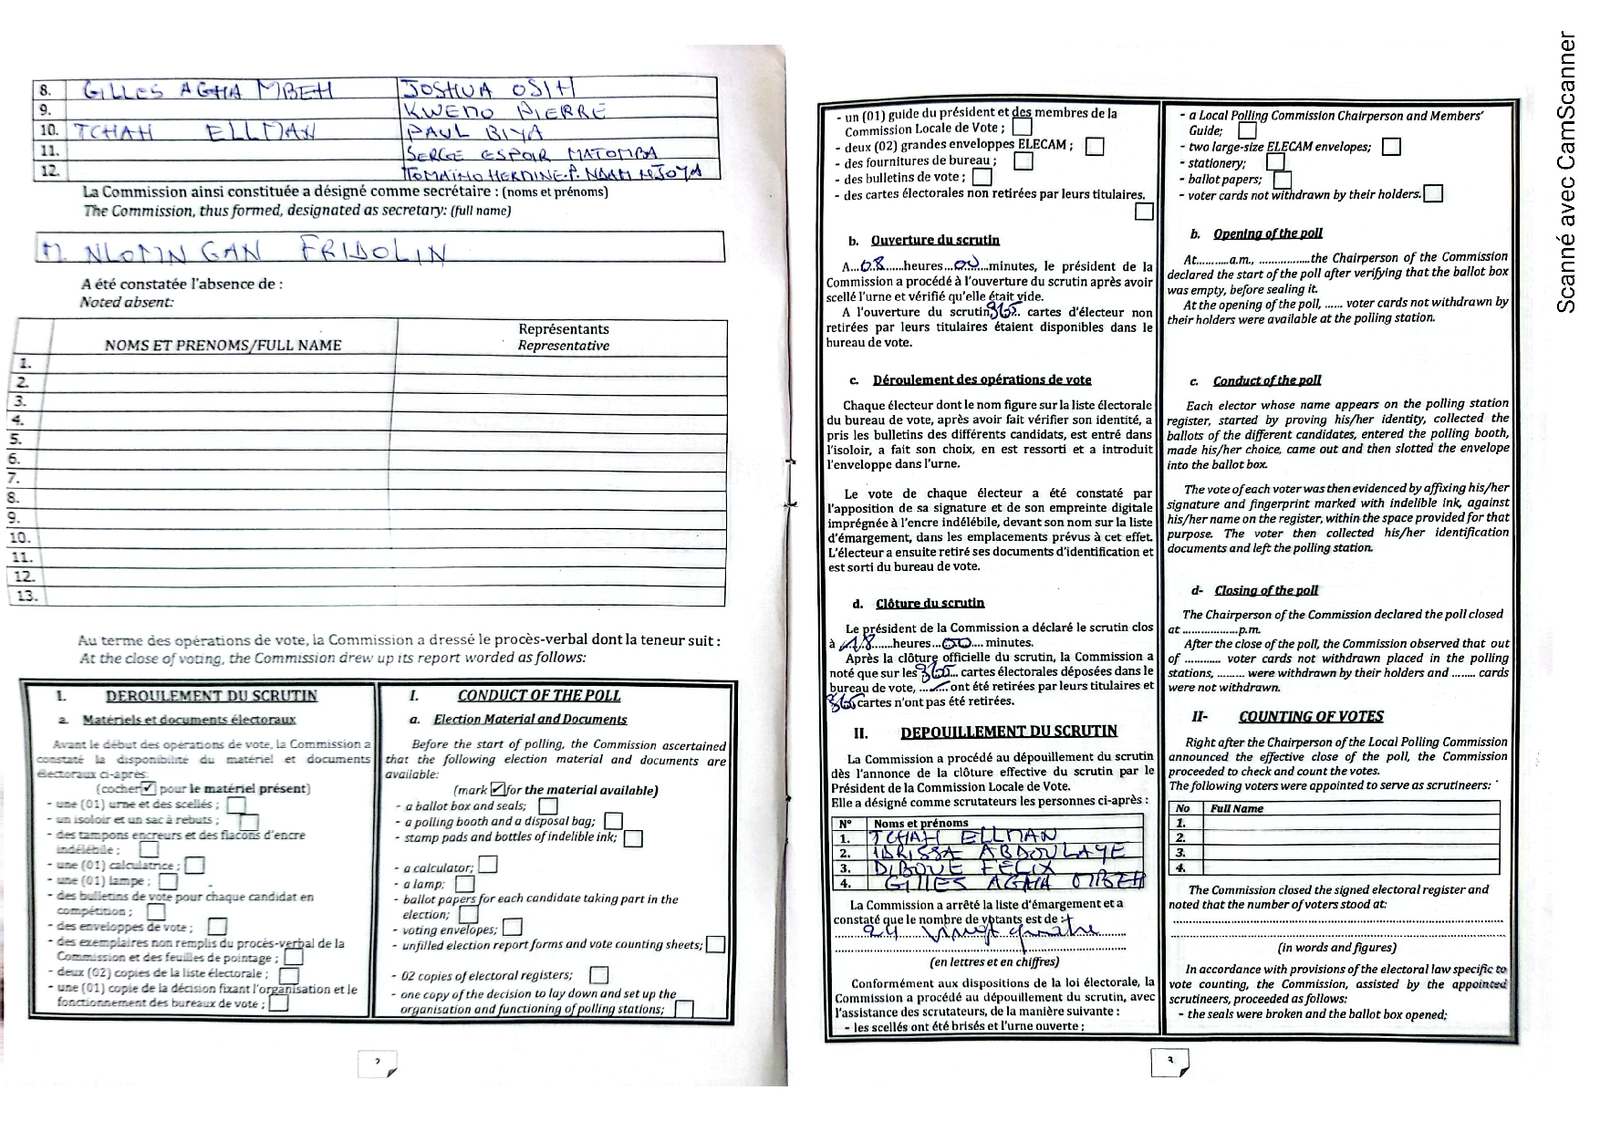 8. GILLES AGHA MBEH JOSHUA OSIH
9. KWEMO PIERRE
10. TCHAH ELLMAN PAUL BIYA
11. SERGE ESPOIR MATOMBA
12. TOMAINO HERMINE P. NDAM NJOYA
La Commission ainsi constituée a désigné comme secrétaire : (noms et prénoms)
The Commission, thus formed, designated as secretary: (full name)
M. NLOMNGAN FRIDOLIN
A été constatée l'absence de :
Noted absent:
NOMS ET PRENOMS/FULL NAME
Représentants
Representative
1.
2.
3.
4.
5.
6.
7.
8.
9.
10.
11.
12.
13.
Au terme des opérations de vote, la Commission a dressé le procès-verbal dont la teneur suit :
At the close of voting, the Commission drew up its report worded as follows:
I. DEROULEMENT DU SCRUTIN
a. Matériels et documents électoraux
Avant le début des opérations de vote, la Commission a
constaté la disponibilité du matériel et documents
électoraux ci-après:
(cocher ✓ pour le matériel présent)
- une (01) urne et des scellés ;
- un isoloir et un sac à rebuts ;
- des tampons encreurs et des flacons d'encre
indélébile ;
- une (01) calculatrice ;
- une (01) lampe ;
- des bulletins de vote pour chaque candidat en
compétition ;
- des enveloppes de vote ;
- des exemplaires non remplis du procès-verbal de la
Commission et des feuilles de pointage ;
- deux (02) copies de la liste électorale ;
- une (01) copie de la décision fixant l'organisation et le
fonctionnement des bureaux de vote ;
I. CONDUCT OF THE POLL
a. Election Material and Documents
Before the start of polling, the Commission ascertained
that the following election material and documents are
available:
(mark ✓ for the material available)
- a ballot box and seals;
- a polling booth and a disposal bag;
- stamp pads and bottles of indelible ink;
- a calculator;
- a lamp;
- ballot papers for each candidate taking part in the
election;
- voting envelopes;
- unfilled election report forms and vote counting sheets;
- 02 copies of electoral registers;
- one copy of the decision to lay down and set up the
organisation and functioning of polling stations;
2
- un (01) guide du président et des membres de la
Commission Locale de Vote ;
- deux (02) grandes enveloppes ELECAM ;
- des fournitures de bureau ;
- des bulletins de vote ;
- des cartes électorales non retirées par leurs titulaires.
b. Ouverture du scrutin
A...08......heures...00......minutes, le président de la
Commission a procédé à l'ouverture du scrutin après avoir
scellé l'urne et vérifié qu'elle était vide.
A l'ouverture du scrutin 365 cartes d'électeur non
retirées par leurs titulaires étaient disponibles dans le
bureau de vote.
c. Déroulement des opérations de vote
Chaque électeur dont le nom figure sur la liste électorale
du bureau de vote, après avoir fait vérifier son identité, a
pris les bulletins des différents candidats, est entré dans
l'isoloir, a fait son choix, en est ressorti et a introduit
l'enveloppe dans l'urne.
Le vote de chaque électeur a été constaté par
l'apposition de sa signature et de son empreinte digitale
imprégnée à l'encre indélébile, devant son nom sur la liste
d'émargement, dans les emplacements prévus à cet effet.
L'électeur a ensuite retiré ses documents d'identification et
est sorti du bureau de vote.
d. Clôture du scrutin
Le président de la Commission a déclaré le scrutin clos
à 18......heures...00.... minutes.
Après la clôture officielle du scrutin, la Commission a
noté que sur les 365... cartes électorales déposées dans le
bureau de vote, ....... ont été retirées par leurs titulaires et
365 cartes n'ont pas été retirées.
II. DEPOUILLEMENT DU SCRUTIN
La Commission a procédé au dépouillement du scrutin
dès l'annonce de la clôture effective du scrutin par le
Président de la Commission Locale de Vote.
Elle a désigné comme scrutateurs les personnes ci-après :
N° Noms et prénoms
1. TCHAH ELLMAN
2. IDRISSA ABDOULAYE
3. DIBOUE FELIX
4. GILLES AGHA MBEH
La Commission a arrêté la liste d'émargement et a
constaté que le nombre de votants est de :
24 vingt quatre
(en lettres et en chiffres)
Conformément aux dispositions de la loi électorale, la
Commission a procédé au dépouillement du scrutin, avec
l'assistance des scrutateurs, de la manière suivante :
- les scellés ont été brisés et l'urne ouverte ;
- a Local Polling Commission Chairperson and Members'
Guide;
- two large-size ELECAM envelopes;
- stationery;
- ballot papers;
- voter cards not withdrawn by their holders.
b. Opening of the poll
At..........a.m., ................the Chairperson of the Commission
declared the start of the poll after verifying that the ballot box
was empty, before sealing it.
At the opening of the poll, ...... voter cards not withdrawn by
their holders were available at the polling station.
c. Conduct of the poll
Each elector whose name appears on the polling station
register, started by proving his/her identity, collected the
ballots of the different candidates, entered the polling booth,
made his/her choice, came out and then slotted the envelope
into the ballot box.
The vote of each voter was then evidenced by affixing his/her
signature and fingerprint marked with indelible ink, against
his/her name on the register, within the space provided for that
purpose. The voter then collected his/her identification
documents and left the polling station.
d- Closing of the poll
The Chairperson of the Commission declared the poll closed
at ..................p.m.
After the close of the poll, the Commission observed that out
of ............ voter cards not withdrawn placed in the polling
stations, ......... were withdrawn by their holders and ........ cards
were not withdrawn.
II- COUNTING OF VOTES
Right after the Chairperson of the Local Polling Commission
announced the effective close of the poll, the Commission
proceeded to check and count the votes.
The following voters were appointed to serve as scrutineers:
No Full Name
1.
2.
3.
4.
The Commission closed the signed electoral register and
noted that the number of voters stood at:
(in words and figures)
In accordance with provisions of the electoral law specific to
vote counting, the Commission, assisted by the appointed
scrutineers, proceeded as follows:
- the seals were broken and the ballot box opened;
3
Scanné avec CamScanner